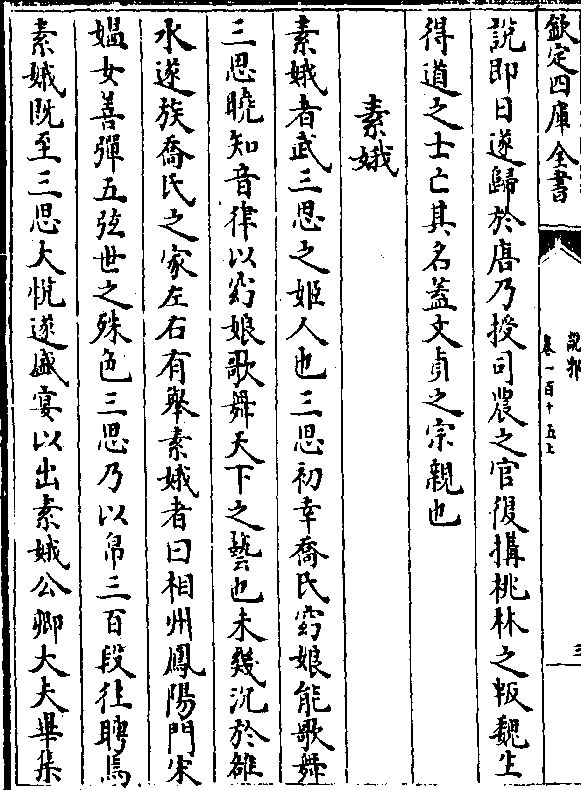 欽定四庫全書
說郛
卷一百十五上
三
說即日遂歸於唐乃授司農之官復搆桃林之叛魏生
得道之士亡其名蓋文貞之宗親也
素娥
素娥者武三思之姬人也三思初幸喬氏窈娘能歌舞
三思曉知音律以窈娘歌舞天下之藝也未幾沉於雒
水遂族喬氏之家左右有舉素娥者曰相州鳳陽門宋
媪女善彈五弦世之殊色三思乃以帛三百段往聘焉
素娥既至三思大悅遂盛宴以出素娥公卿大夫畢集